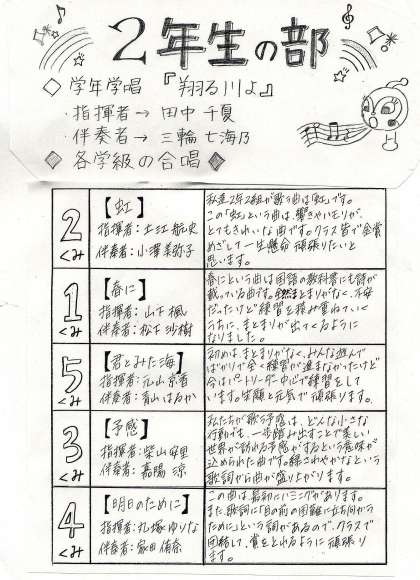 2年生の部
◇学年学唱『翔る川よ』
・指揮者→田中千夏
・伴奏者→三輪七海乃
◆各学級の合唱◆
2くみ
【虹】
指揮者：土江航史
伴奏者：小澤美弥子
私達2年2組が歌う曲は「虹」です。
この「虹」という曲は、響きやハモリが、
とてもきれいな曲です。クラス皆で金賞
めざして一生懸命頑張りたいと
思います。
1くみ
【春に】
指揮者：山下楓
伴奏者：松下沙樹
春にという曲は国語の教科書にも詩が
載っている曲です。まとまりがなく、不安
だったけど練習を積み重ねていく
うちに、まとまりが出てくるように
なりました。
5くみ
【君とみた海】
指揮者：元山京香
伴奏者：青山はるか
初めは、まとまりがなく、みんな遊んで
ばかりで全く練習が進まなかったけど
今はパートリーダー中心で練習をして
います。笑顔と元気で頑張ります。
3くみ
【予感】
指揮者：柴山安里
伴奏者：嘉陽涼
私たちが歌う予感は、どんな小さな
行動でも、一歩踏み出すことで美しい
世界が訪れる予感がするという意味が
込められた曲です。緑さわやかなという
歌詞から曲が盛り上がります。
4くみ
【明日のために】
指揮者：丸塚ゆりな
伴奏者：家田侑奈
この曲は、最初にハミングがあります。
また歌詞に「目の前の困難に立ち向かう
ために」という詞があるので、クラスで
団結して、賞をとれるように頑張り
ます。